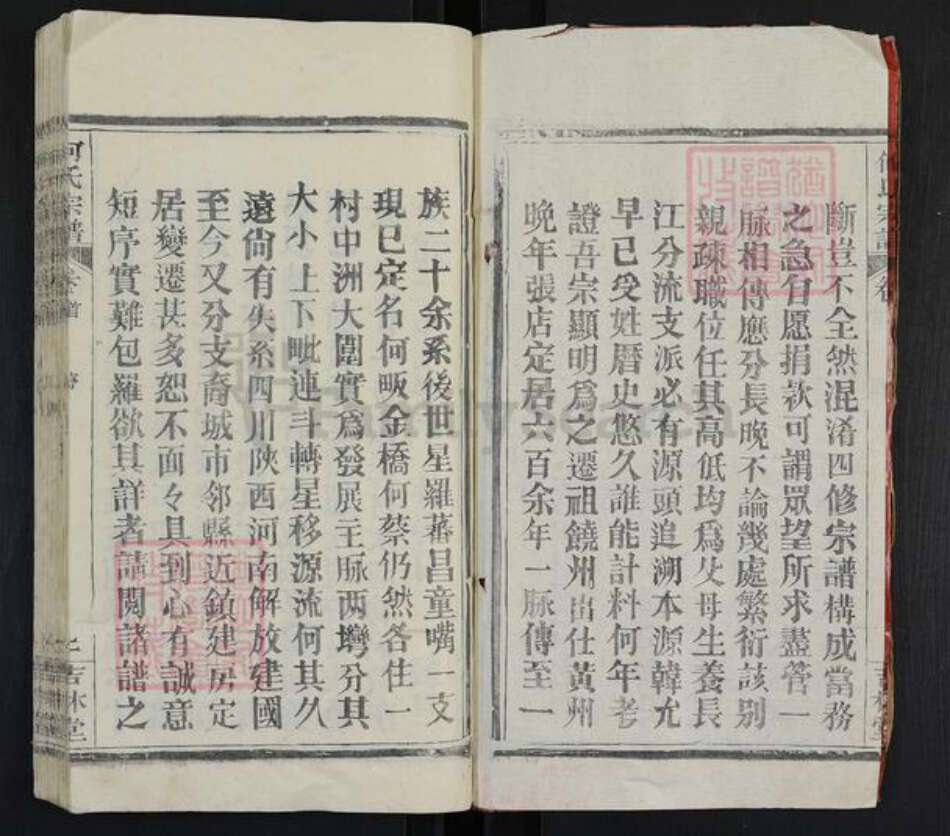 斷豈不全然混淆四修宗譜構成當務
之急自愿捐款可謂眾望所求盡管一
脉相傳應分長晚不論幾處繁衍該別
親疎職位任其高低均為父母生養長
江分流支派必有源頭追溯本源韓允
早已受姓曆史悠久誰能計料何年考
證吾宗顯明為之遷祖饒州出仕黃州
晚年張店定居六百余年一脉傳至一
族二十余系後世星羅蕃昌童嘴一支
現已定名何畈金橋何蔡仍然各住一
村中洲大圍實為發展主脉两塆分其
大小上下毗連斗轉星移源流何其久
遠尚有失系四川陝西河南解放建國
至今又分支裔城市邻縣近鎮建房定
居變遷甚多恕不面々具到心有誠意
短序實難包羅欲其詳者請閱諸譜之
何氏宗譜 卷首 序 吉林堂